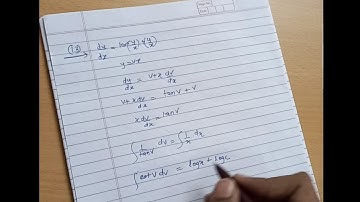 (13) dy/dx = tan(y/x) + (y/x)
y = vx
dy/dx = v + x dv/dx
v + x dv/dx = tan v + v
x dv/dx = tan v
∫ 1/tan v dv = ∫ 1/x dx
∫ cot v dv = log x + log c